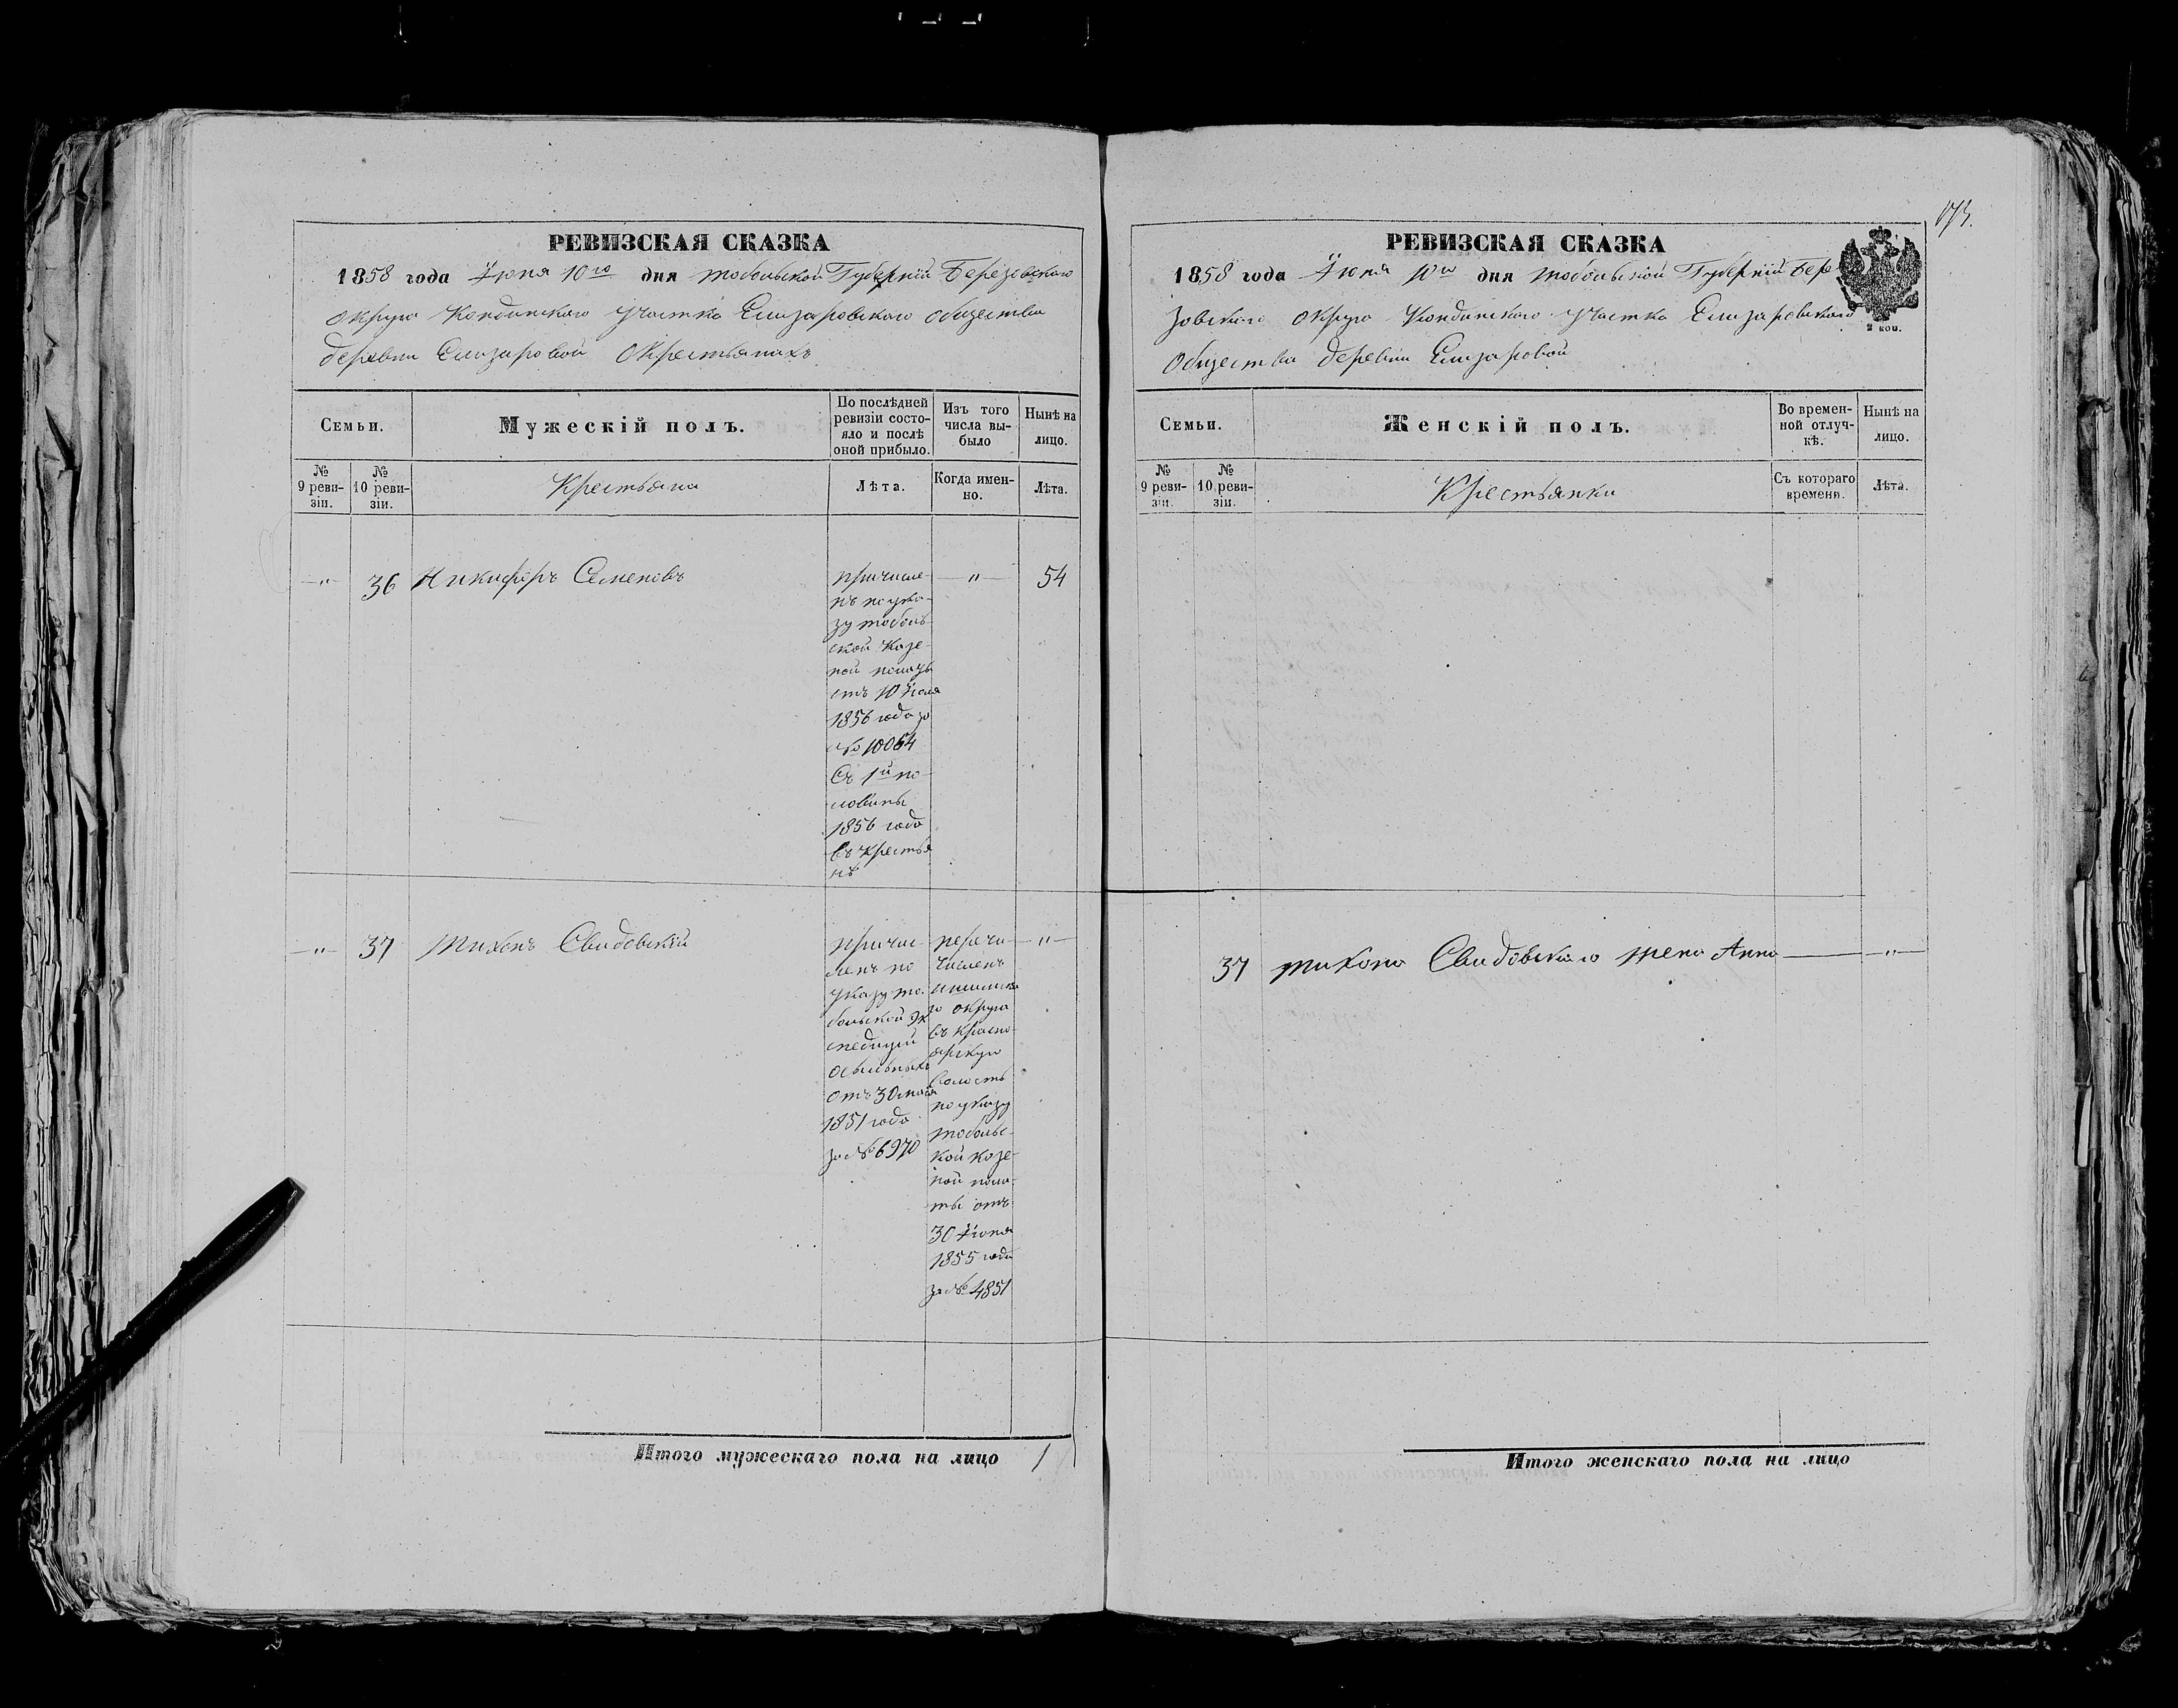 РЕВИЗСКАЯ СКАЗКА
1858 года Июня 10го дня Тобольской Губерніи Березовскаго
округа Кондинскаго Участка Елизаровскаго общества
деревни Елизаровой О Крестьянахъ
Семьи.
Мужескій полъ.
По послѣдней
ревизіи состо-
яло и послѣ
оной прибыло.
Изъ того
числа вы-
было
Нынѣ на
лицо.
№
9 реви-
зіи.
№
10 реви-
зіи.
Крестьяне
Лѣта.
Когда имен-
но.
Лѣта.
—"— 36 Никифоръ Семеновъ —"— 54
причисле-
нъ по ука-
зу Тоболь-
ской Казе-
ной палаты
отъ 10 Іюля
1856 года за
№ 10064
съ 1й по-
ловины
1856 года
въ крестья
нѣ
—"— 37 Тихонъ Свидовскій —"—
причис-
ленъ по
указу То-
больской Эк
спедиціи
о ссыльныхъ
отъ 30 мая
1851 года
за № 6970
перечи-
сленъ
Ишимска
го округа
въ Красно-
ярскую
волость
по указу
Тобольс-
кой казе-
ной пала-
ты отъ
30 Іюня
1855 года
за № 4851
Итого мужескаго пола на лицо 1
РЕВИЗСКАЯ СКАЗКА
1858 года Июня 10го дня Тобольской Губерніи Бере-
зовскаго округа Кондинскаго Участка Елизаровскаго
общества деревни Елизаровой
2 коп.
Семьи.
Женскій полъ.
Во времен-
ной отлуч-
кѣ.
Нынѣ на
лицо.
№
9 реви-
зіи.
№
10 реви-
зіи.
Крестьянки
Съ котораго
времени.
Лѣта.
37 Тихона Свидовскаго жена Анна —"—
Итого женскаго пола на лицо